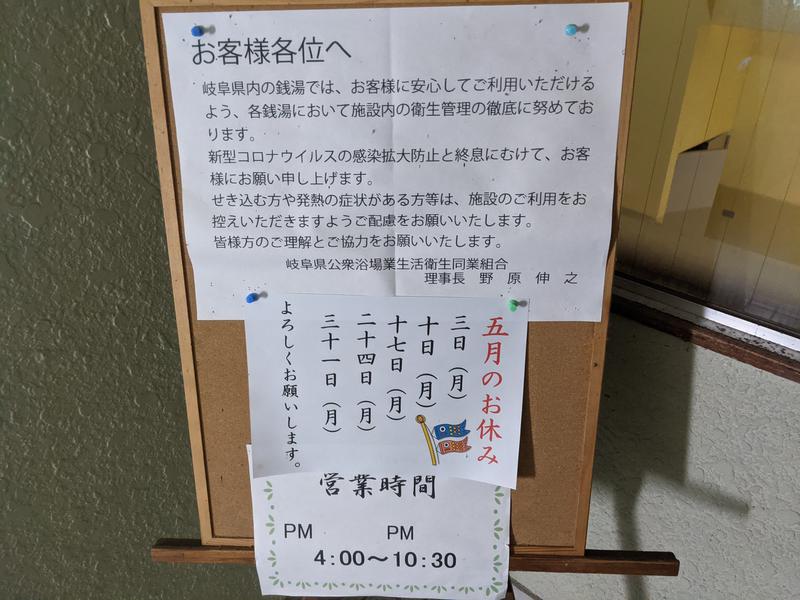 お客様各位へ
岐阜県内の銭湯では、お客様に安心してご利用いただける
よう、各銭湯において施設内の衛生管理の徹底に努めてお
ります。
新型コロナウイルスの感染拡大防止と終息にむけて、お客
様にお願い申し上げます。
せき込む方や発熱の症状がある方等は、施設のご利用をお
控えいただきますようご配慮をお願いいたします。
皆様方のご理解とご協力をお願いいたします。
岐阜県公衆浴場業生活衛生同業組合
理事長 野原伸之
五月のお休み
三日(月)
十日(月)
十七日(月)
二十四日(月)
三十一日(月)
よろしくお願いします。
営業時間
PM PM
4:00～10:30